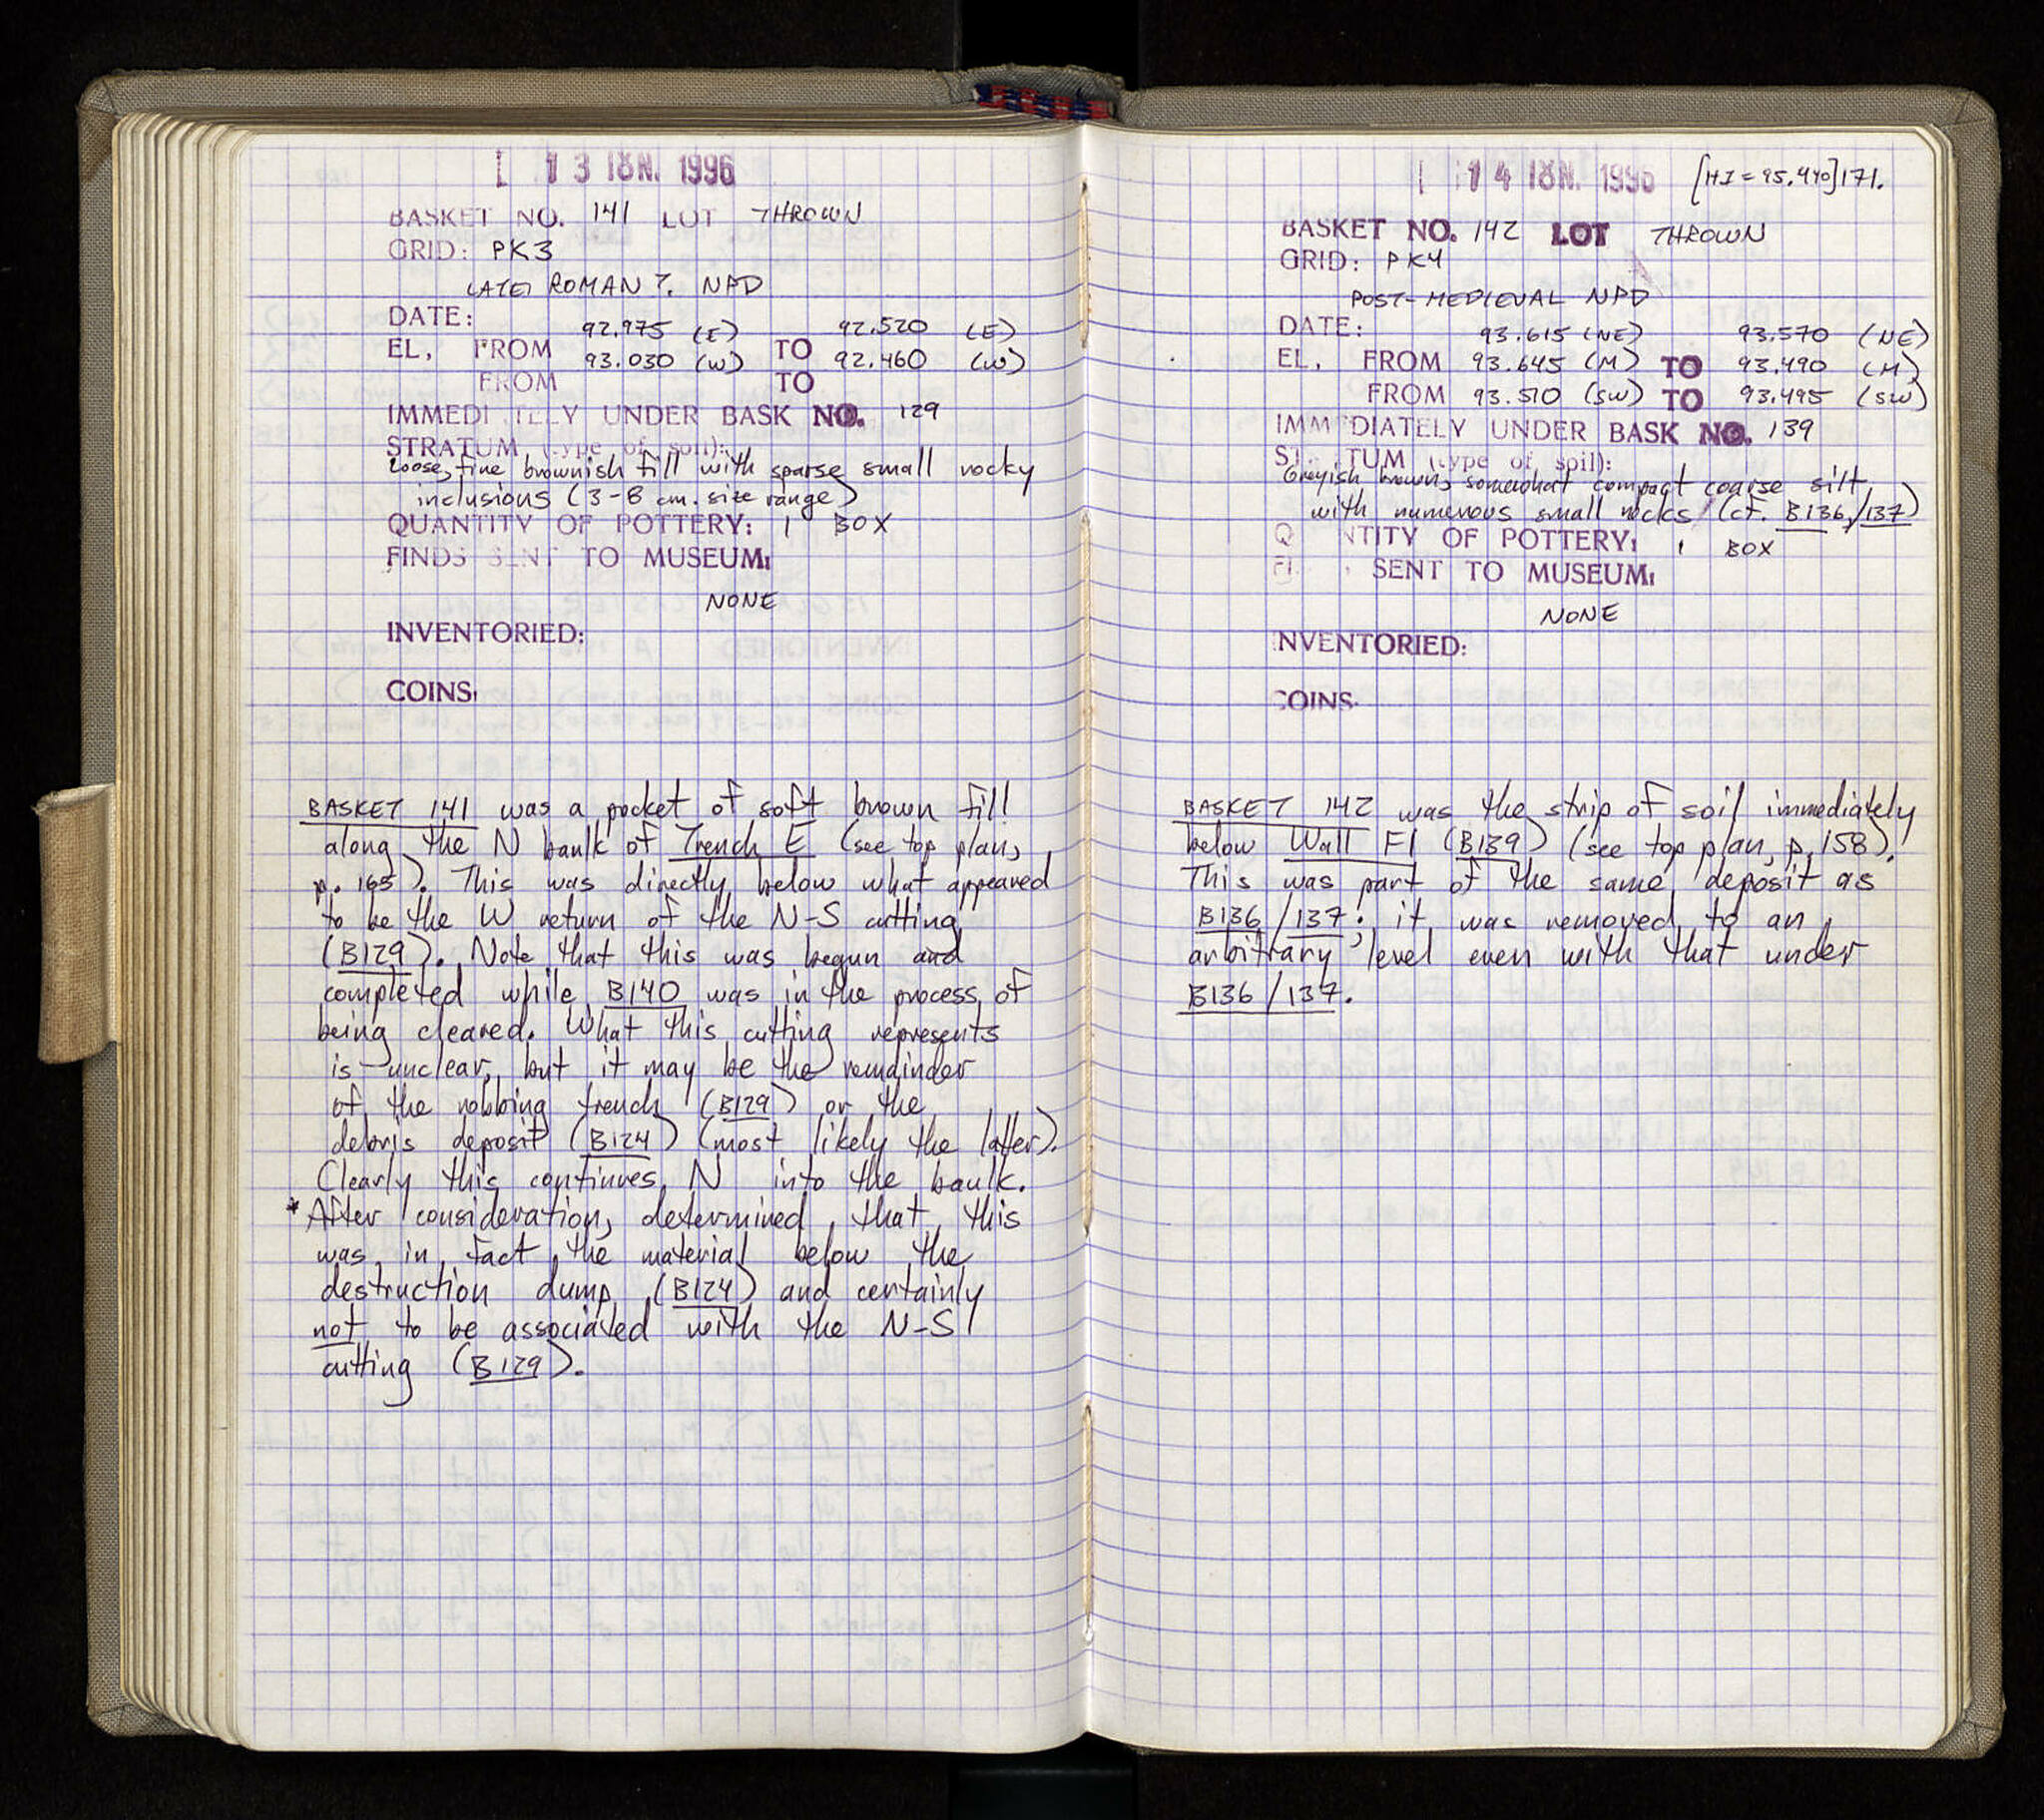 13 ΙΟΥΝ. 1996
BASKET NO. 141 LOT THROWN
GRID: PK3
LATE ROMAN ?. NPD
DATE:
92.975 (E) 92.520 (E)
EL, FROM TO
93.030 (W) 92.460 (W)
FROM TO
IMMEDI TELY UNDER BASK NO. 129
STRATUM (type of soil):
Loose, fine brownish fill with sparse small rocky
inclusions (3-8 cm. size range)
QUANTITY OF POTTERY: 1 BOX
FINDS SENT TO MUSEUM:
NONE
INVENTORIED:
COINS:
BASKET 141 was a pocket of soft brown fill
along the N baulk of Trench E (see top plan,
p. 165). This was directly below what appeared
to be the W return of the N-S cutting
(B129). Note that this was begun and
completed while B140 was in the process of
being cleared. What this cutting represents
is unclear, but it may be the remainder
of the robbing trench (B129) or the
debris deposit (B124) (most likely the latter).
Clearly this continues N into the baulk.
* After consideration, determined that this
was in fact the material below the
destruction dump (B124) and certainly
not to be associated with the N-S
cutting (B129).
14 ΙΟΥΝ. 1996 [HI = 95.440] 171.
BASKET NO. 142 LOT THROWN
GRID: PK4
POST-MEDIEVAL NPD
DATE:
93.615 (NE) 93.570 (NE)
EL, FROM 93.645 (M) TO 93.490 (M)
FROM 93.510 (SW) TO 93.495 (SW)
IMM DIATELY UNDER BASK NO. 139
ST TUM (type of soil):
Greyish brown, somewhat compact coarse silt
with numerous small rocks (cf. B136/137)
Q NTITY OF POTTERY: 1 BOX
FI SENT TO MUSEUM:
NONE
INVENTORIED:
COINS:
BASKET 142 was the strip of soil immediately
below Wall F1 (B139) (see top plan, p. 158).
This was part of the same deposit as
B136/137; it was removed to an
arbitrary level even with that under
B136/137.